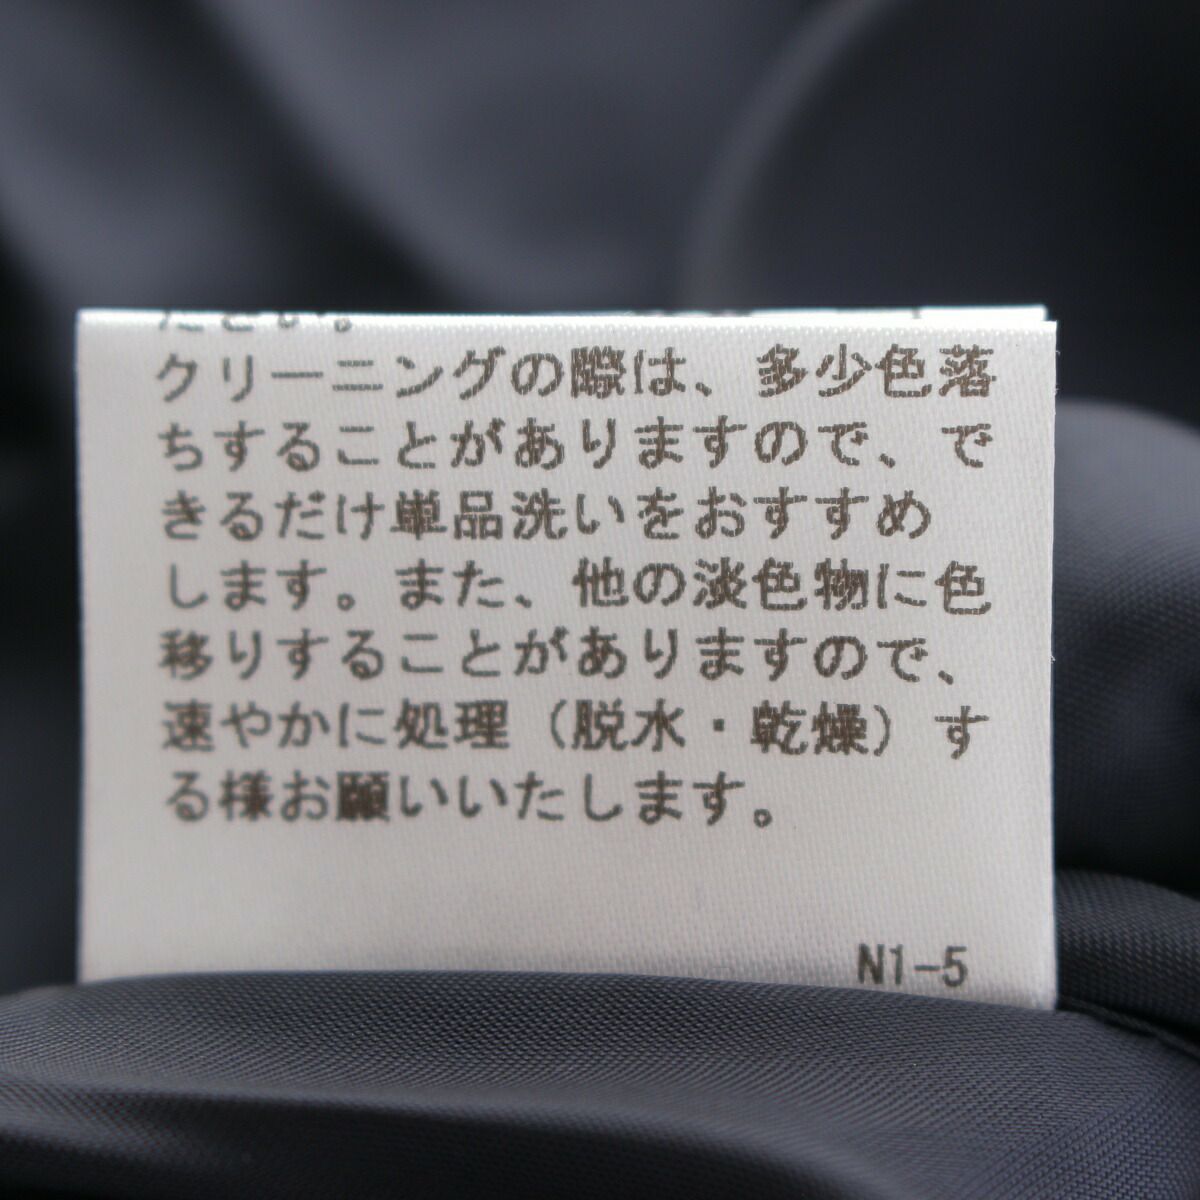 ださい。
クリーニングの際は、多少色落
ちすることがありますので、で
きるだけ単品洗いをおすすめ
します。また、他の淡色物に色
移りすることがありますので、
速やかに処理（脱水・乾燥）す
る様お願いいたします。
N1-5